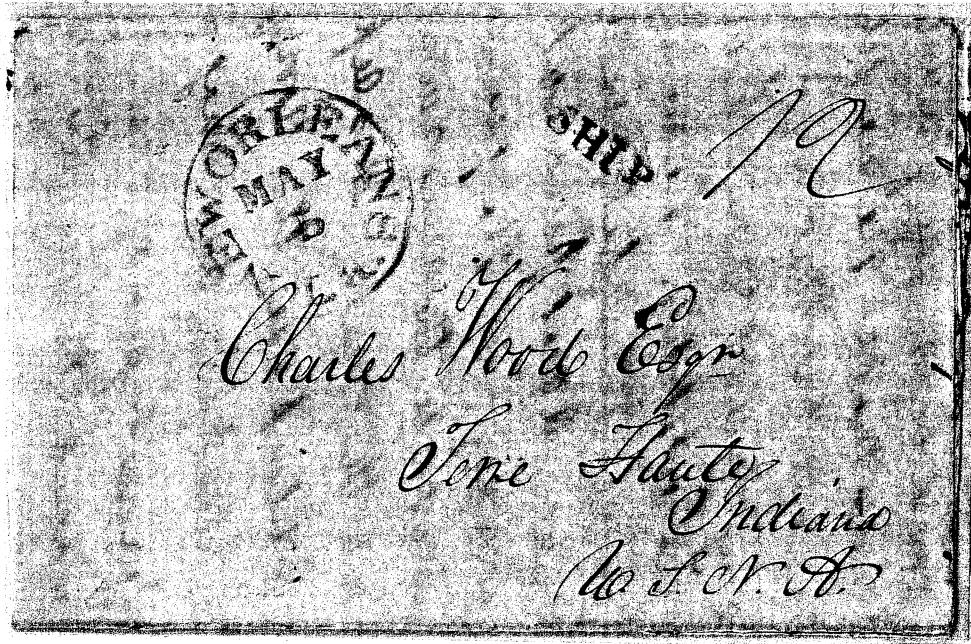 NEW ORLEANS
MAY
SHIP
12
Charles Wood Esqr
Terre Haute
Indiana
U. S. N. A.